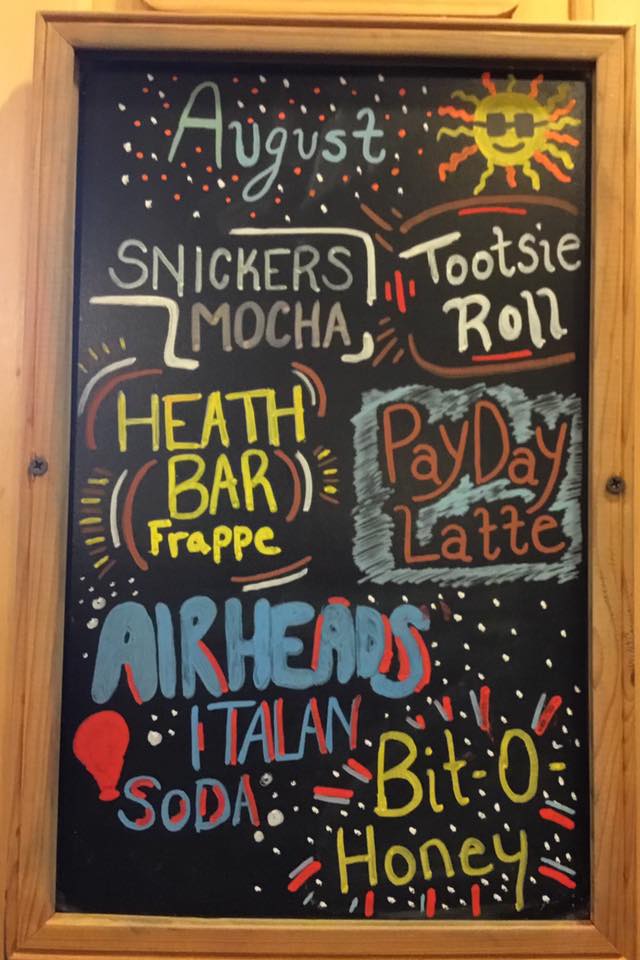 August
SNICKERS
MOCHA
Tootsie
Roll
HEATH
BAR
Frappe
PayDay
Latte
AIRHEADS
ITALAN
SODA
Bit-O-
Honey